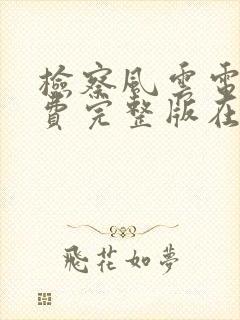 檢察風雲電
費完整版在
飛花如夢